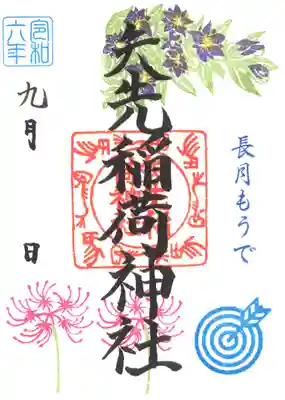 長月もうで
矢先稲荷神社
令和
六年
九月 日